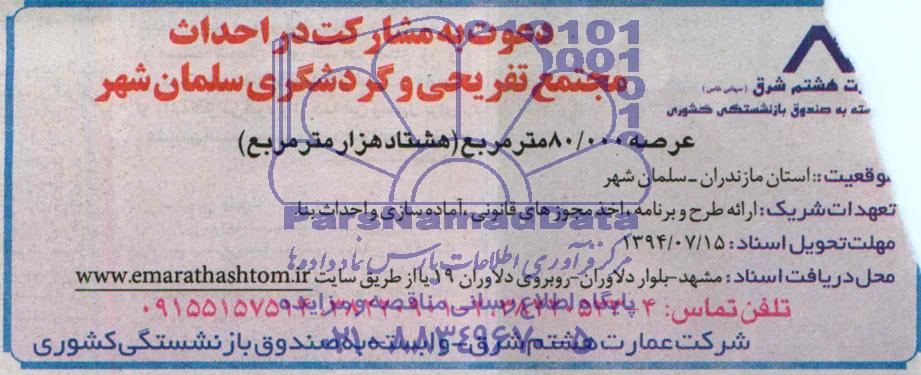 دعوت به مشارکت در احداث
مجتمع تفریحی و گردشگری سلمان شهر
ت هشتم شرق (سهامی خاص)
سته به صندوق بازنشستگی کشوری
عرصه ۸۰/۰۰۰ مترمربع (هشتاد هزار متر مربع)
موقعیت :: استان مازندران - سلمان شهر
تعهدات شریک: ارائه طرح و برنامه، اخذ مجوزهای قانونی، آماده سازی و احداث بنا.
مهلت تحویل اسناد: ۱۳۹۴/۰۷/۱۵
محل دریافت اسناد: مشهد-بلوار دلاوران-روبروی دلاوران ۱۹ یا از طریق سایت www.emarathashtom.ir
تلفن تماس: ۰۹۱۵۵۱۵۷۵۹۴
شرکت عمارت هشتم شرق - وابسته به صندوق بازنشستگی کشوری
ParsNamadData
مرکز فرآوری اطلاعات پارس نماد داده ها
پایگاه اطلاع رسانی مناقصه و مزایده
۰۲۱-۸۸۳۴۹۶۷۰-۵